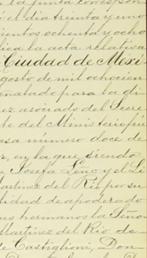 la junta corespon
el dia treinta y uno
cientos ochenta y ocho
ica la acta relativa
Ciudad de Mexi
gosto de mil ochocien
señalado para la
vez asociado del Secre
te del Ministerio
sa número doce de
z, en la que siendo
Josefa Lenz y el L
artinez del Rio por su
lidad de apoderado
us hermanos la Seño
Martinez del Rio de
de Castiglioni, Don